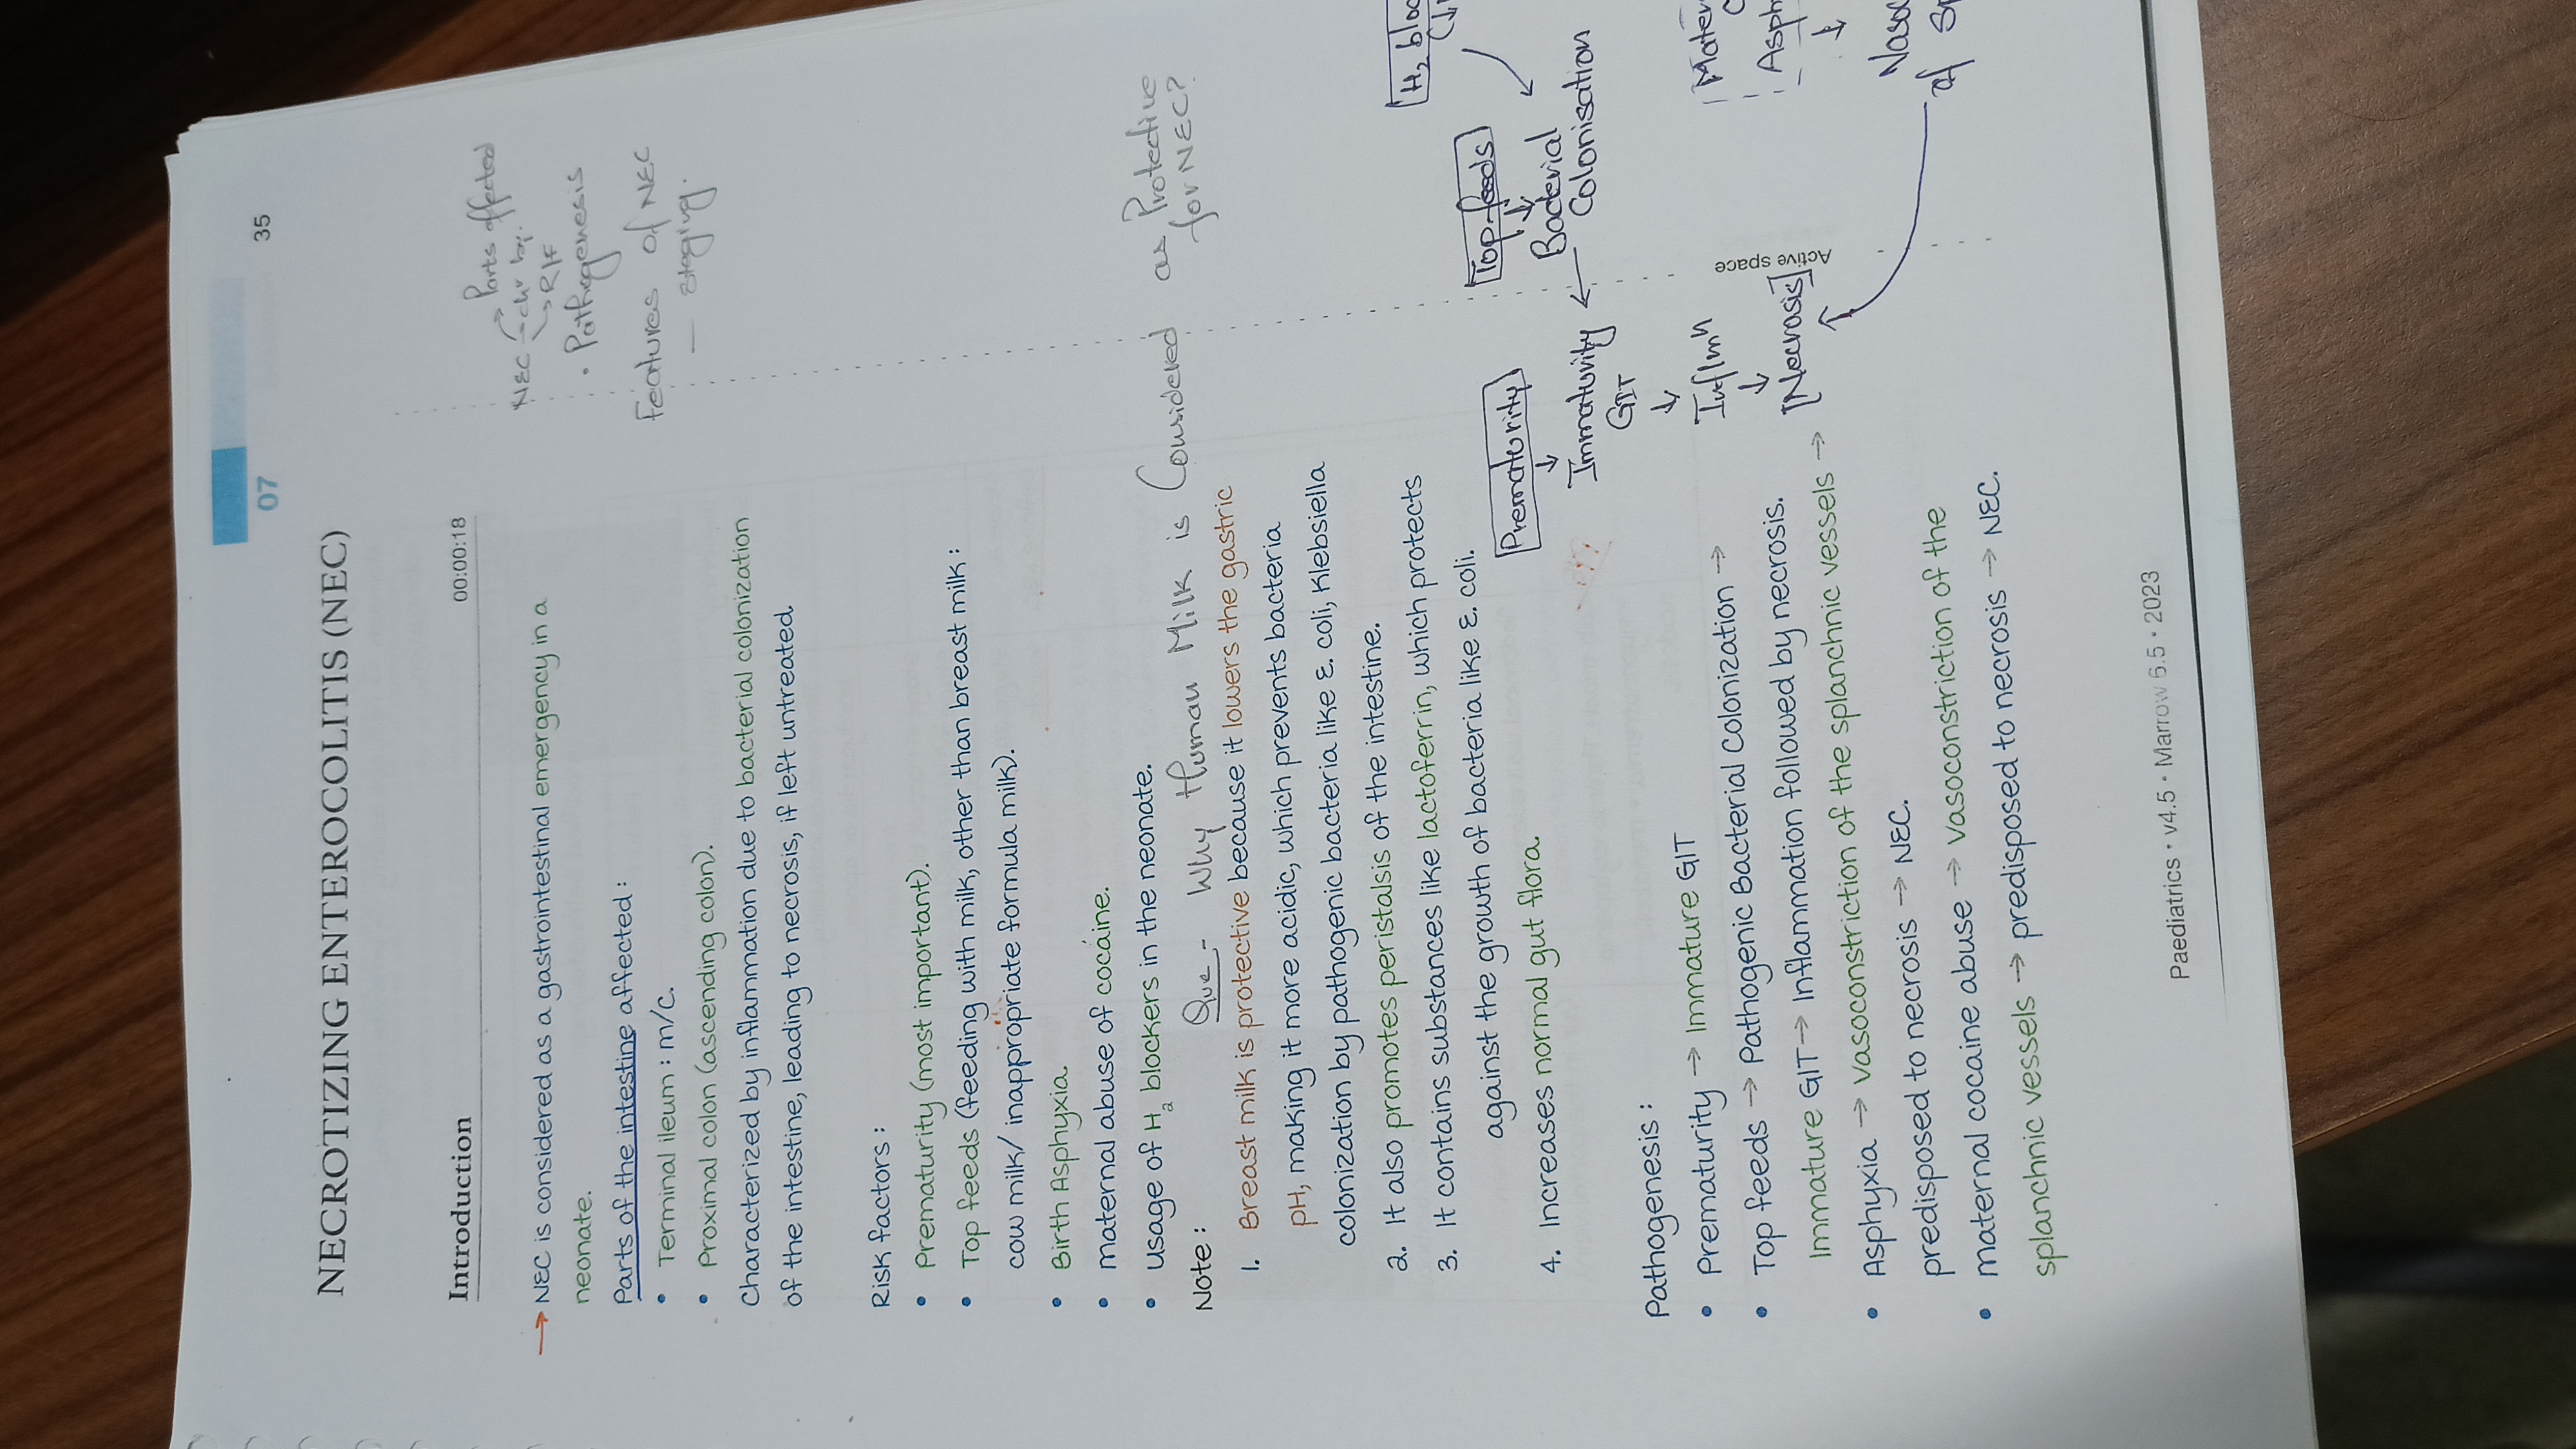 07
35
NECROTIZING ENTEROCOLITIS (NEC)
Introduction 00:00:18
→ NEC is considered as a gastrointestinal emergency in a
neonate.
Parts of the intestine affected :
• Terminal ileum : m/c.
• Proximal colon (ascending colon).
Characterized by inflammation due to bacterial colonization
of the intestine, leading to necrosis, if left untreated.
Parts affected
NEC → chr by.
R/F
• Pathogenesis
Features of NEC
— staging.
Risk factors :
• Prematurity (most important).
• Top feeds (feeding with milk, other than breast milk :
cow milk/ inappropriate formula milk).
• Birth Asphyxia.
• maternal abuse of cocaine.
• usage of H₂ blockers in the neonate.
Que - Why Human Milk is Considered as Protective
for NEC?
Note :
1. Breast milk is protective because it lowers the gastric
pH, making it more acidic, which prevents bacteria
colonization by pathogenic bacteria like E. coli, Klebsiella
2. It also promotes peristalsis of the intestine.
3. It contains substances like lactoferrin, which protects
against the growth of bacteria like E. coli.
4. Increases normal gut flora.
H₂ bloc
(↓
Top feeds
Prematurity
↓
Bacterial
Colonisation
Immaturity ←
GIT
↓
Inflmn
↓
[Necrosis]
Mater
C
Asph
↓
Vasoc
of Sp
Active space
Pathogenesis :
• Prematurity → Immature GIT
• Top feeds → Pathogenic Bacterial Colonization →
Immature GIT → Inflammation followed by necrosis.
• Asphyxia → vasoconstriction of the splanchnic vessels →
predisposed to necrosis → NEC.
• maternal cocaine abuse → vasoconstriction of the
splanchnic vessels → predisposed to necrosis → NEC.
Paediatrics • v4.5 • Marrow 6.5 • 2023